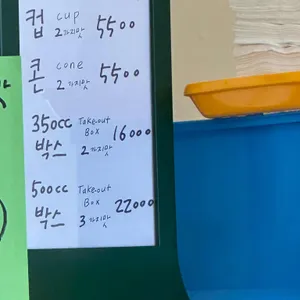 컵 cup 5500
2가지맛
콘 cone 5500
2가지맛
350cc Take-out
박스 Box 16000
2가지맛
500cc Take-out
박스 Box 22000
3가지맛
맛